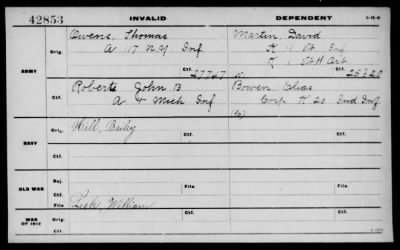 42853 INVALID DEPENDENT
Owens, Thomas Martin, David
Orig. A 117 N.Y. Inf K 1 Vt Inf
ARMY K 1 Vt H Art
Ctf. Ctf.
Roberts John B Bowen, Elias
Orig. A 4 Mich Inf Corp K 20 Ind Inf
Ctf. Ctf.
Hill, Bailey
Orig.
NAVY
Ctf. Ctf.
Rej.
OLD WAR Ctf. File Ctf. File
William
WAR OF 1812
Ctf. Ctf.